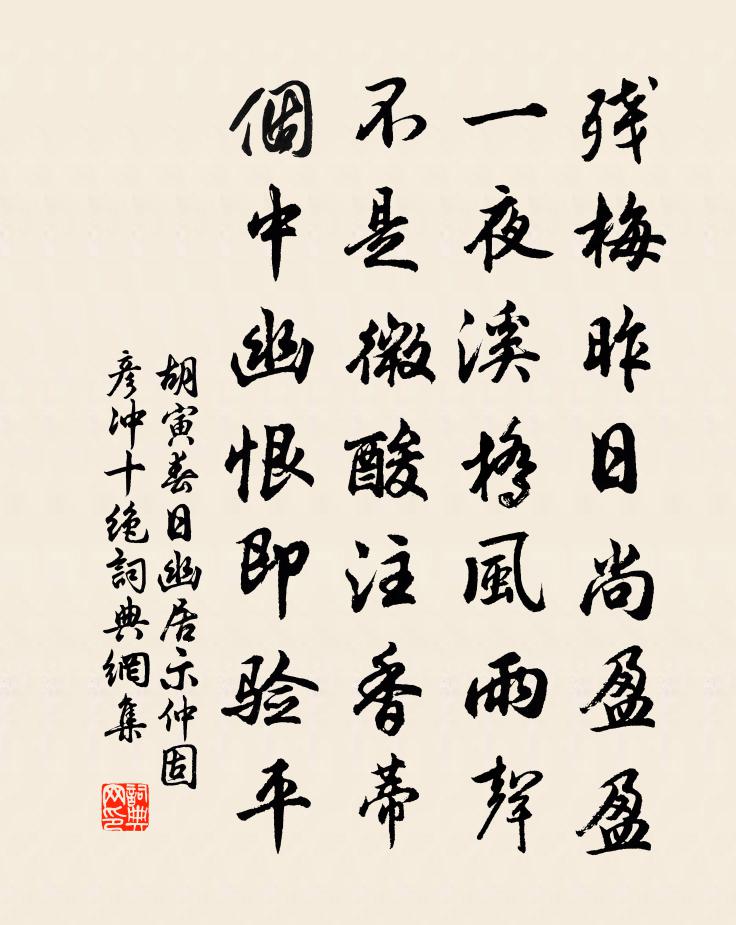 残梅昨日尚盈盈
一夜溪橋風雨聲
不是微酸注香蒂
個中幽恨即验平
胡寅春日幽居示仲固
彦冲十绝詞典網集
詞典
网印